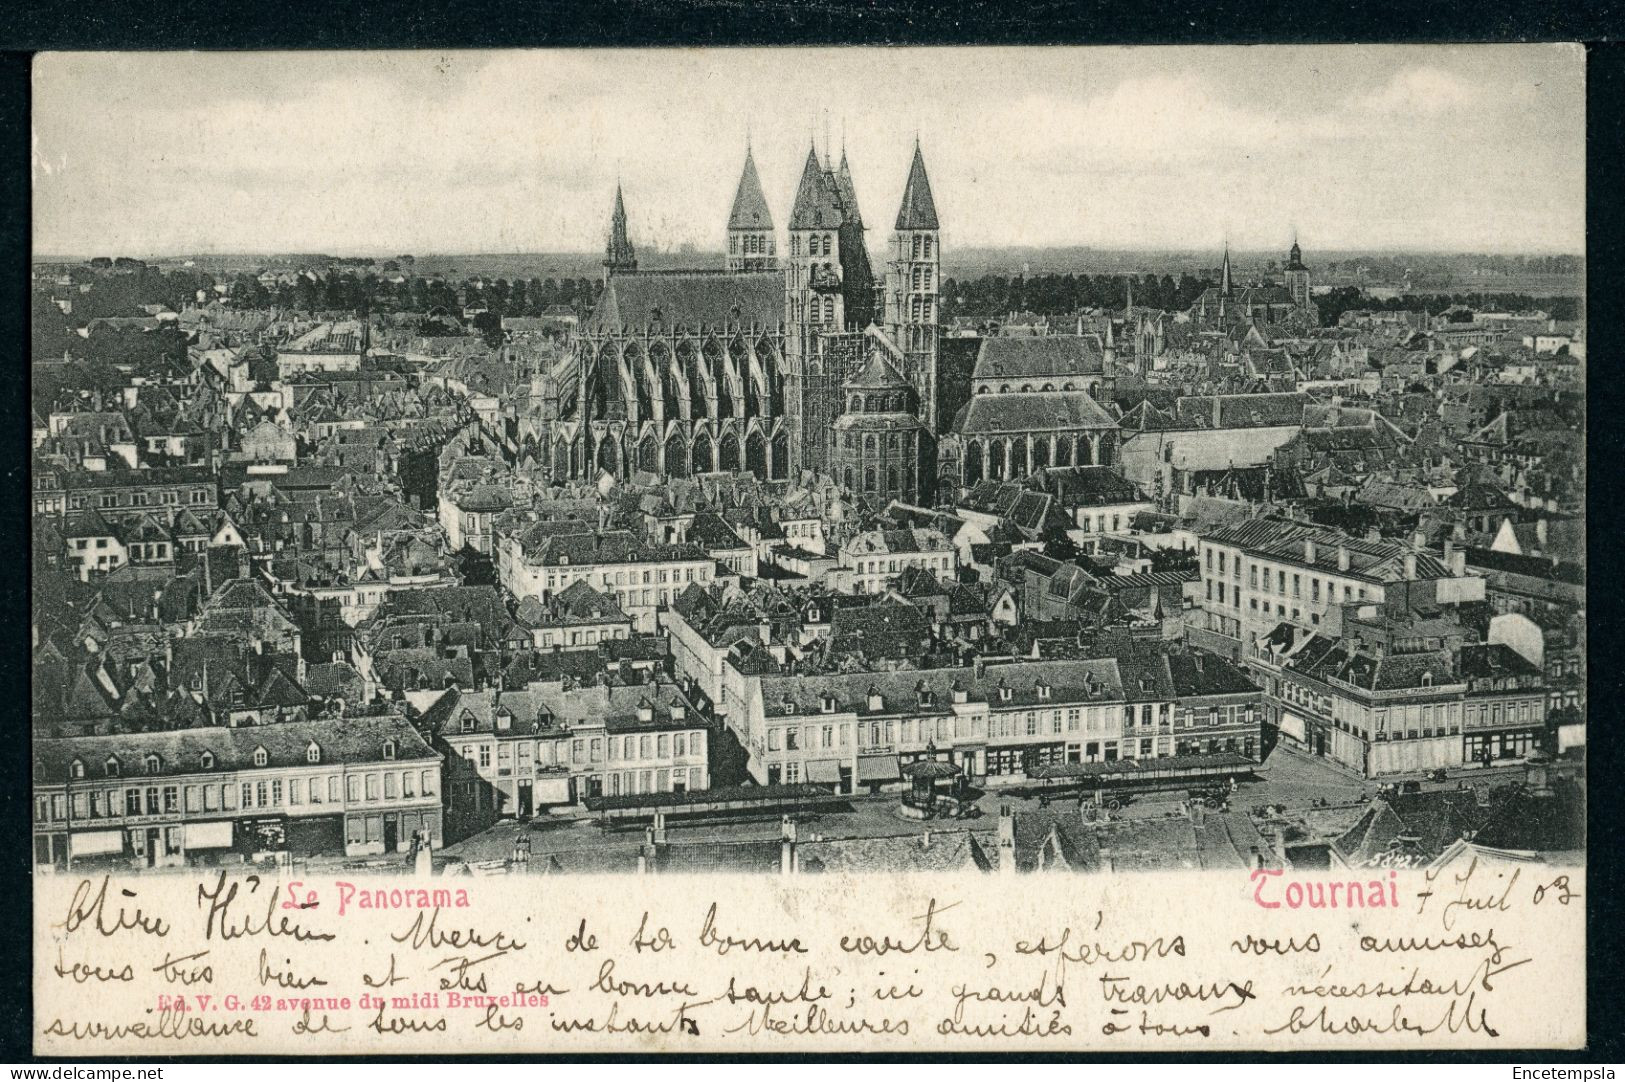 AU BON MARCHÉ
58427
Le Panorama
Tournai 7 Juil 03
Chère Hélène. Merci de ta bonne carte, espérons vous amusez
tous très bien et êtes en bonne santé; ici grands travaux nécessitant
Ed. V. G. 42 avenue du midi Bruxelles
surveillance de tous les instants Meilleures amitiés à tous. Charles M
delcampe.net
Encetempsla